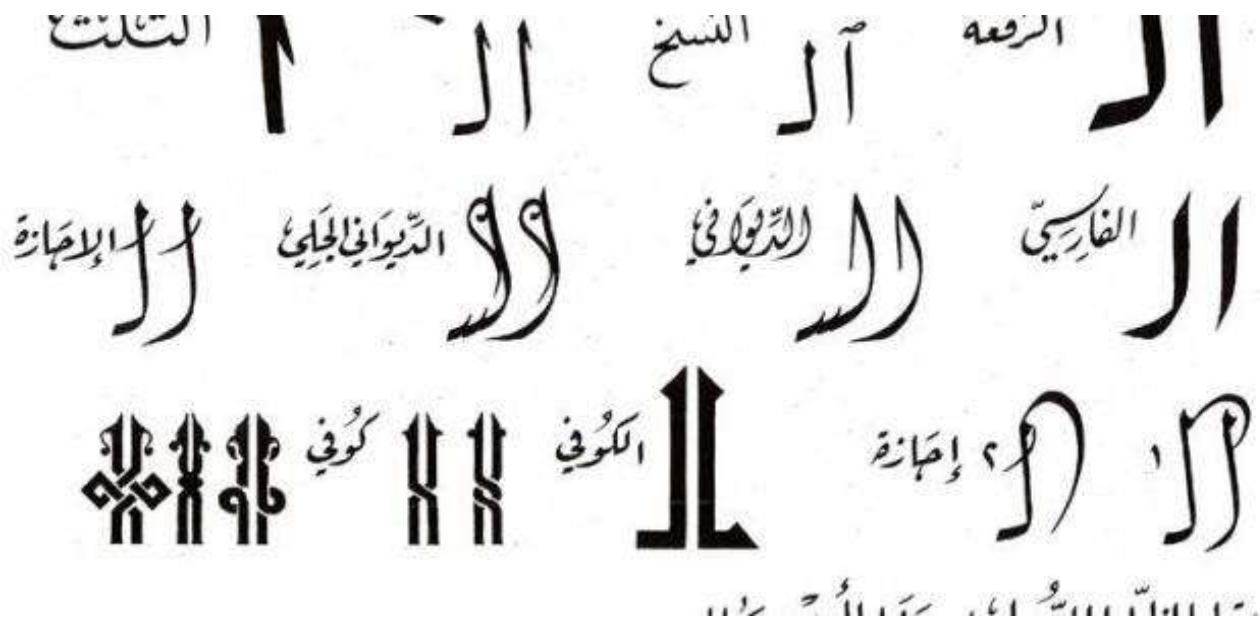 ال الرقعة ال النسخ ال ا الثلث
ال الفارسيّ ال الدِّيوَاني ال الدِّيوَاني الجَلِي ال الإجَازة
١ ال ٢ ال إجَازة ال الكُوفي كُوفي